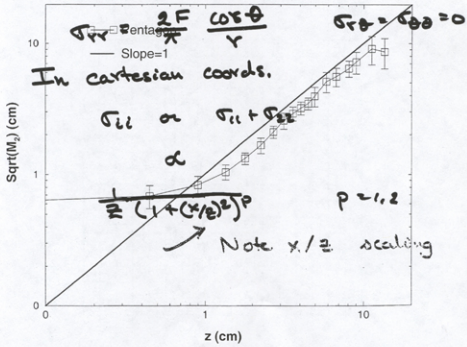 σrr = 2F/π cosθ/r
σrθ = σθθ = 0
Pentagon
Slope=1
In cartesian coords.
σii or σ11 + σ22
∝
1/z (1+(x/z)²)^p
p = 1, 2
Note x/z scaling
Sqrt(M₂) (cm)
10
1
0
0
1
10
z (cm)